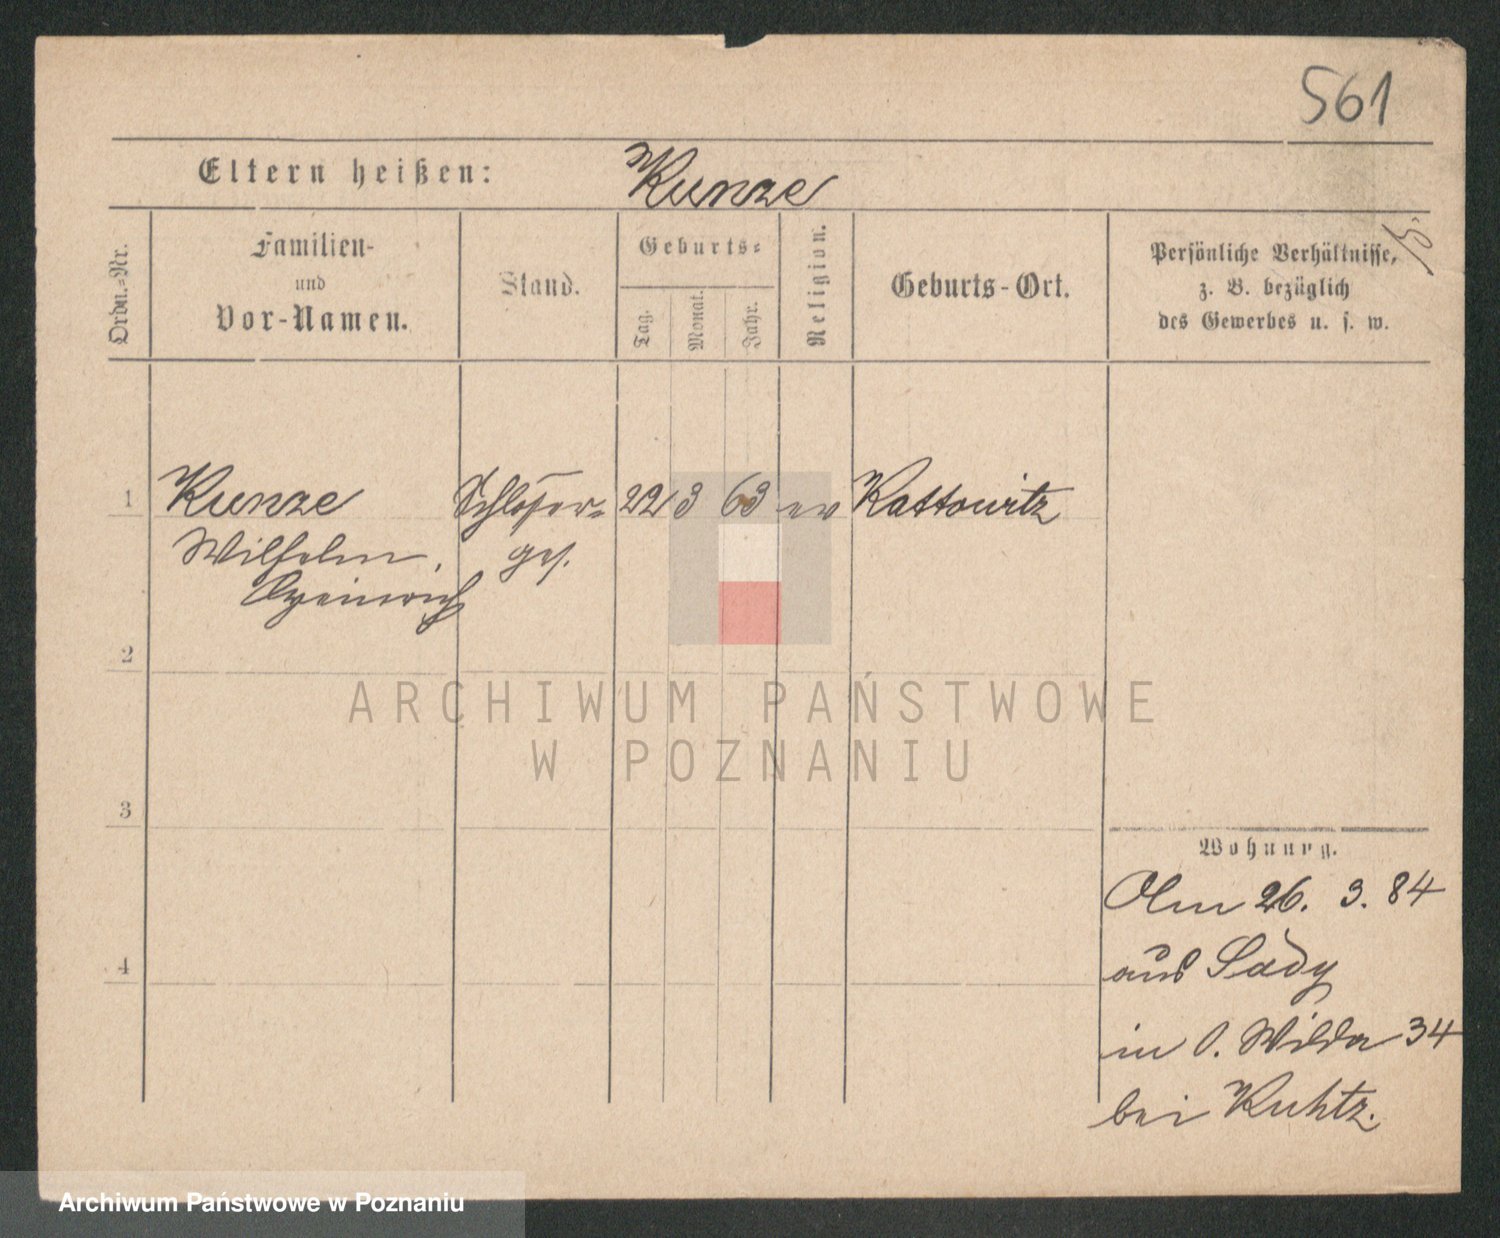 561
Eltern heißen: Kunze
Ordn.-Nr.
Familien-
und
Vor-Namen.
Stand.
Geburts-
Tag.
Monat.
Jahr.
Religion.
Geburts-Ort.
Persönliche Verhältnisse,
z. B. bezüglich
des Gewerbes u. s. w.
1 Kunze Schloßer- 22 3 63 ev Kattowitz
Wilhelm, ges.
Heinrich
2
3
4
Wohnung.
Am 26. 3. 84
aus Sady
in O. Wilda 34
bei Kuhtz.
ARCHIWUM PAŃSTWOWE
W POZNANIU
Archiwum Państwowe w Poznaniu